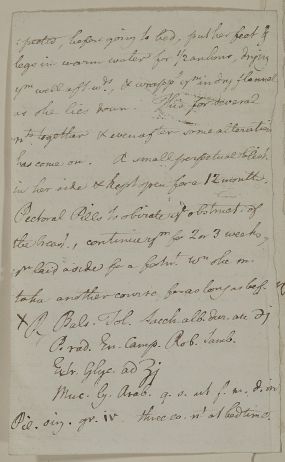 spects, before going to bed, put her feet &
legs in warm water for 1/2 an hour, drying
ym well aftwds, & wrapp'g ym in dry flannel
as she lies down. This for several
nts together & even after some alteration
has come on. A small perpetual blist.
in her side & kept open for a 12 month.
Pectoral Pills to obviate ye obstruct. of
the breast, continue ym for 2 or 3 weeks,
yn laid aside for a fortnt. wn she m.
take another course for as long as bef.
X R. Bals. Tol. Sacch. alb. dur. aa ʒj
P. rad. En. Camp. Rob. Samb.
Extr. Glyc. ad ʒj
Muc. G. Arab. q. s. ut f. m. d. in
Pil. sing. gr. iv. three eo. nt at bedtime.